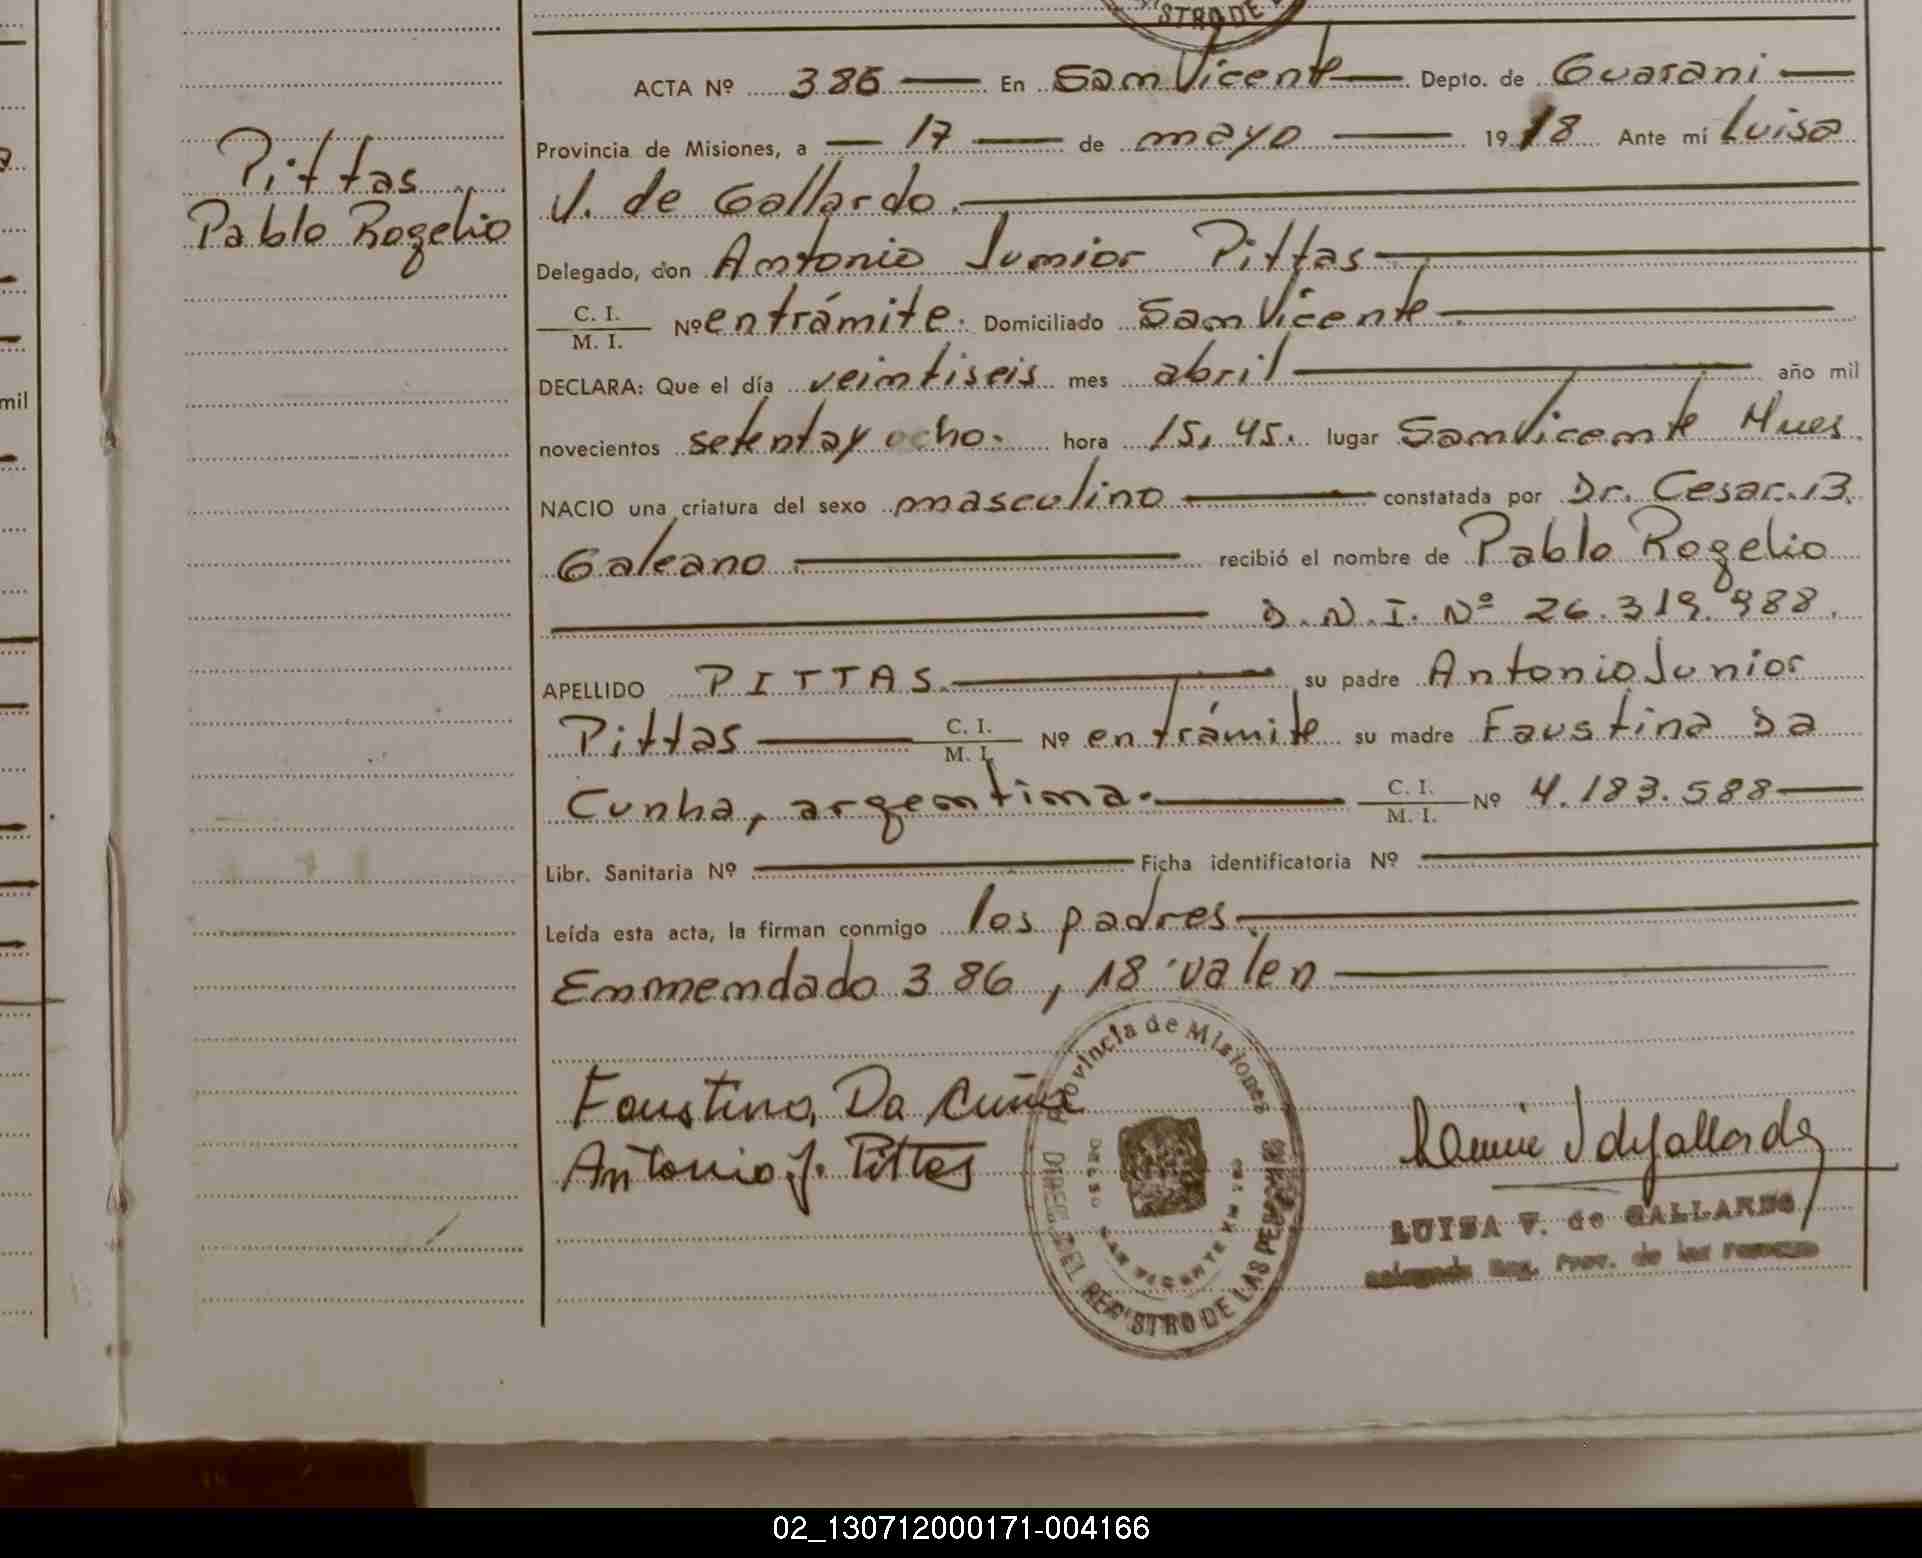 STRO DE
ACTA Nº 386 En San Vicente Depto. de Guarani
Provincia de Misiones, a 17 de mayo 1918 Ante mí Luisa
V. de Gallardo.
Delegado, don Antonio Junior Pittas
C. I.
M. I.
Nº en trámite. Domiciliado San Vicente
DECLARA: Que el día veintiseis mes abril año mil
novecientos setenta y ocho. hora 15,45. lugar San Vicente Mnes.
NACIO una criatura del sexo masculino constatada por Dr. Cesar B.
Galeano recibió el nombre de Pablo Rogelio
D.N.I. Nº 26.319.988.
APELLIDO PITTAS. su padre Antonio Junior
Pittas C. I. M. I. Nº en trámite su madre Faustina Da
Cunha, argentina. C. I. M. I. Nº 4.183.588
Libr. Sanitaria Nº Ficha identificatoria Nº
Leída esta acta, la firman conmigo los padres
Enmendado 386, 18 valen
Pittas
Pablo Rogelio
mil
Faustina, Da Cuña
Antonio J. Pittas
Provincia de Misiones
DEL REGISTRO DE LAS PERSONAS
SAN VICENTE
LUISA V. de GALLARDO
Delegada Reg. Prov. de las Personas
02_130712000171-004166